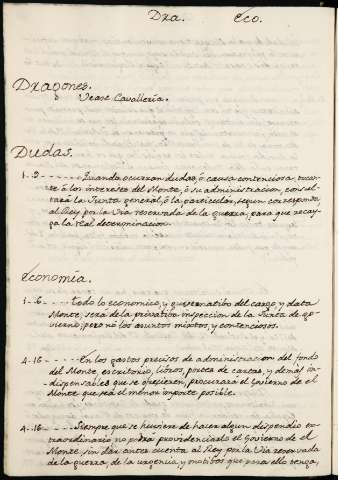 Dra. Eco.
Dragones.
Vease Cavallería.
Dudas.
1..9....... Quando ocurran dudas, ó causa contenciosa, tocan-
te á los intereses del Monte, ó su administracion, consul-
tará la Junta general, ó la particular, segun corresponda
al Rey por la Via reservada de la guerra, para que recay-
ga la real determinacion.
Economía.
1..6...... Todo lo economico, y gubernativo del cargo, y data
Monte, será de la privativa inspeccion de la Junta de go-
vierno; pero no los asuntos mixtos, y contenciosos.
4..16...... En los gastos precisos de administracion del fondo
del Monte, escritorio, libros, portes de cartas, y demas in-
dispensables que se ofrecieren, procurará el Govierno de el
Monte que sea el menor importe posible.
4..16...... Siempre que se huviere de hacer algun dispendio ex-
traordinario no podrá providenciarlo el Govierno de el
Monte, sin dar antes cuenta al Rey por la Via reservada
de la guerra, de la urgencia, y motivos que para ello tenga,